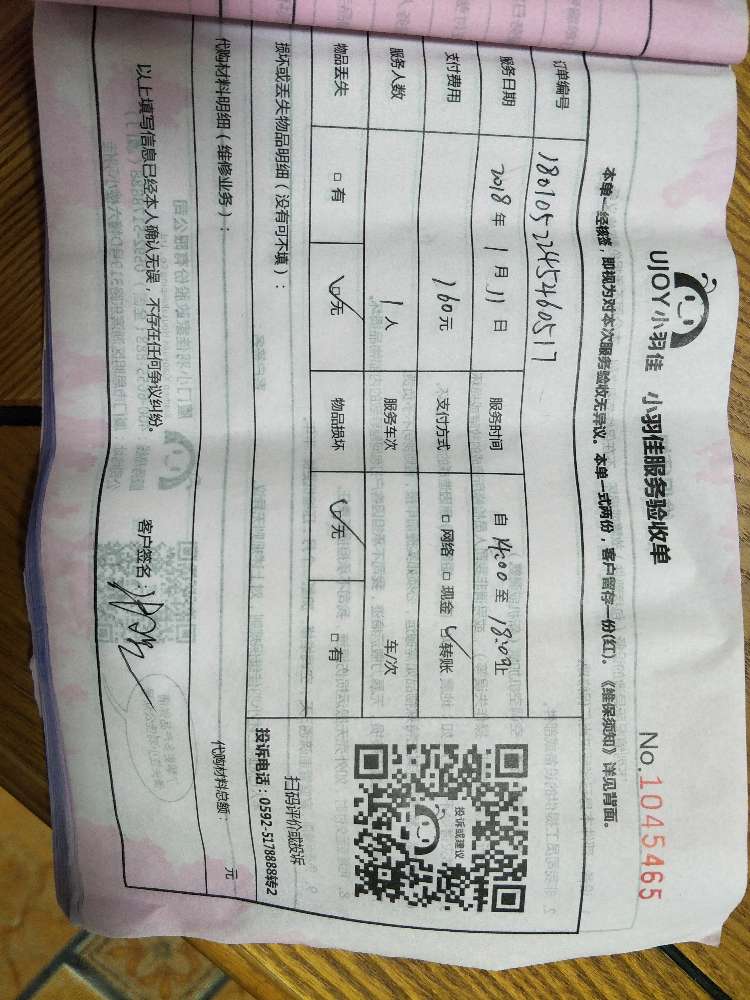 UJOY小羽佳 小羽佳服务验收单
No.1045465
本单一经核签，即视为对本次服务验收无异议。本单一式两份，客户留存一份(红)。《维保须知》详见背面。
订单编号 1801052245460517
服务日期 2018 年 1 月 11 日 服务时间 自 14:00 至 18:00止
支付费用 160元 支付方式 □ 网络 □ 现金 ☑ 转账
服务人数 1 人 服务车次 车/次
物品丢失 □ 有 ☑ 无 物品损坏 ☑ 无 □ 有
损坏或丢失物品明细（没有可不填）：
投诉或建议
扫码评价或投诉
投诉电话：0592-5178888转2
代购材料明细（维修业务）：
代购材料总额： 元
以上填写信息已经本人确认无误，不存在任何争议纠纷。
客户签名：